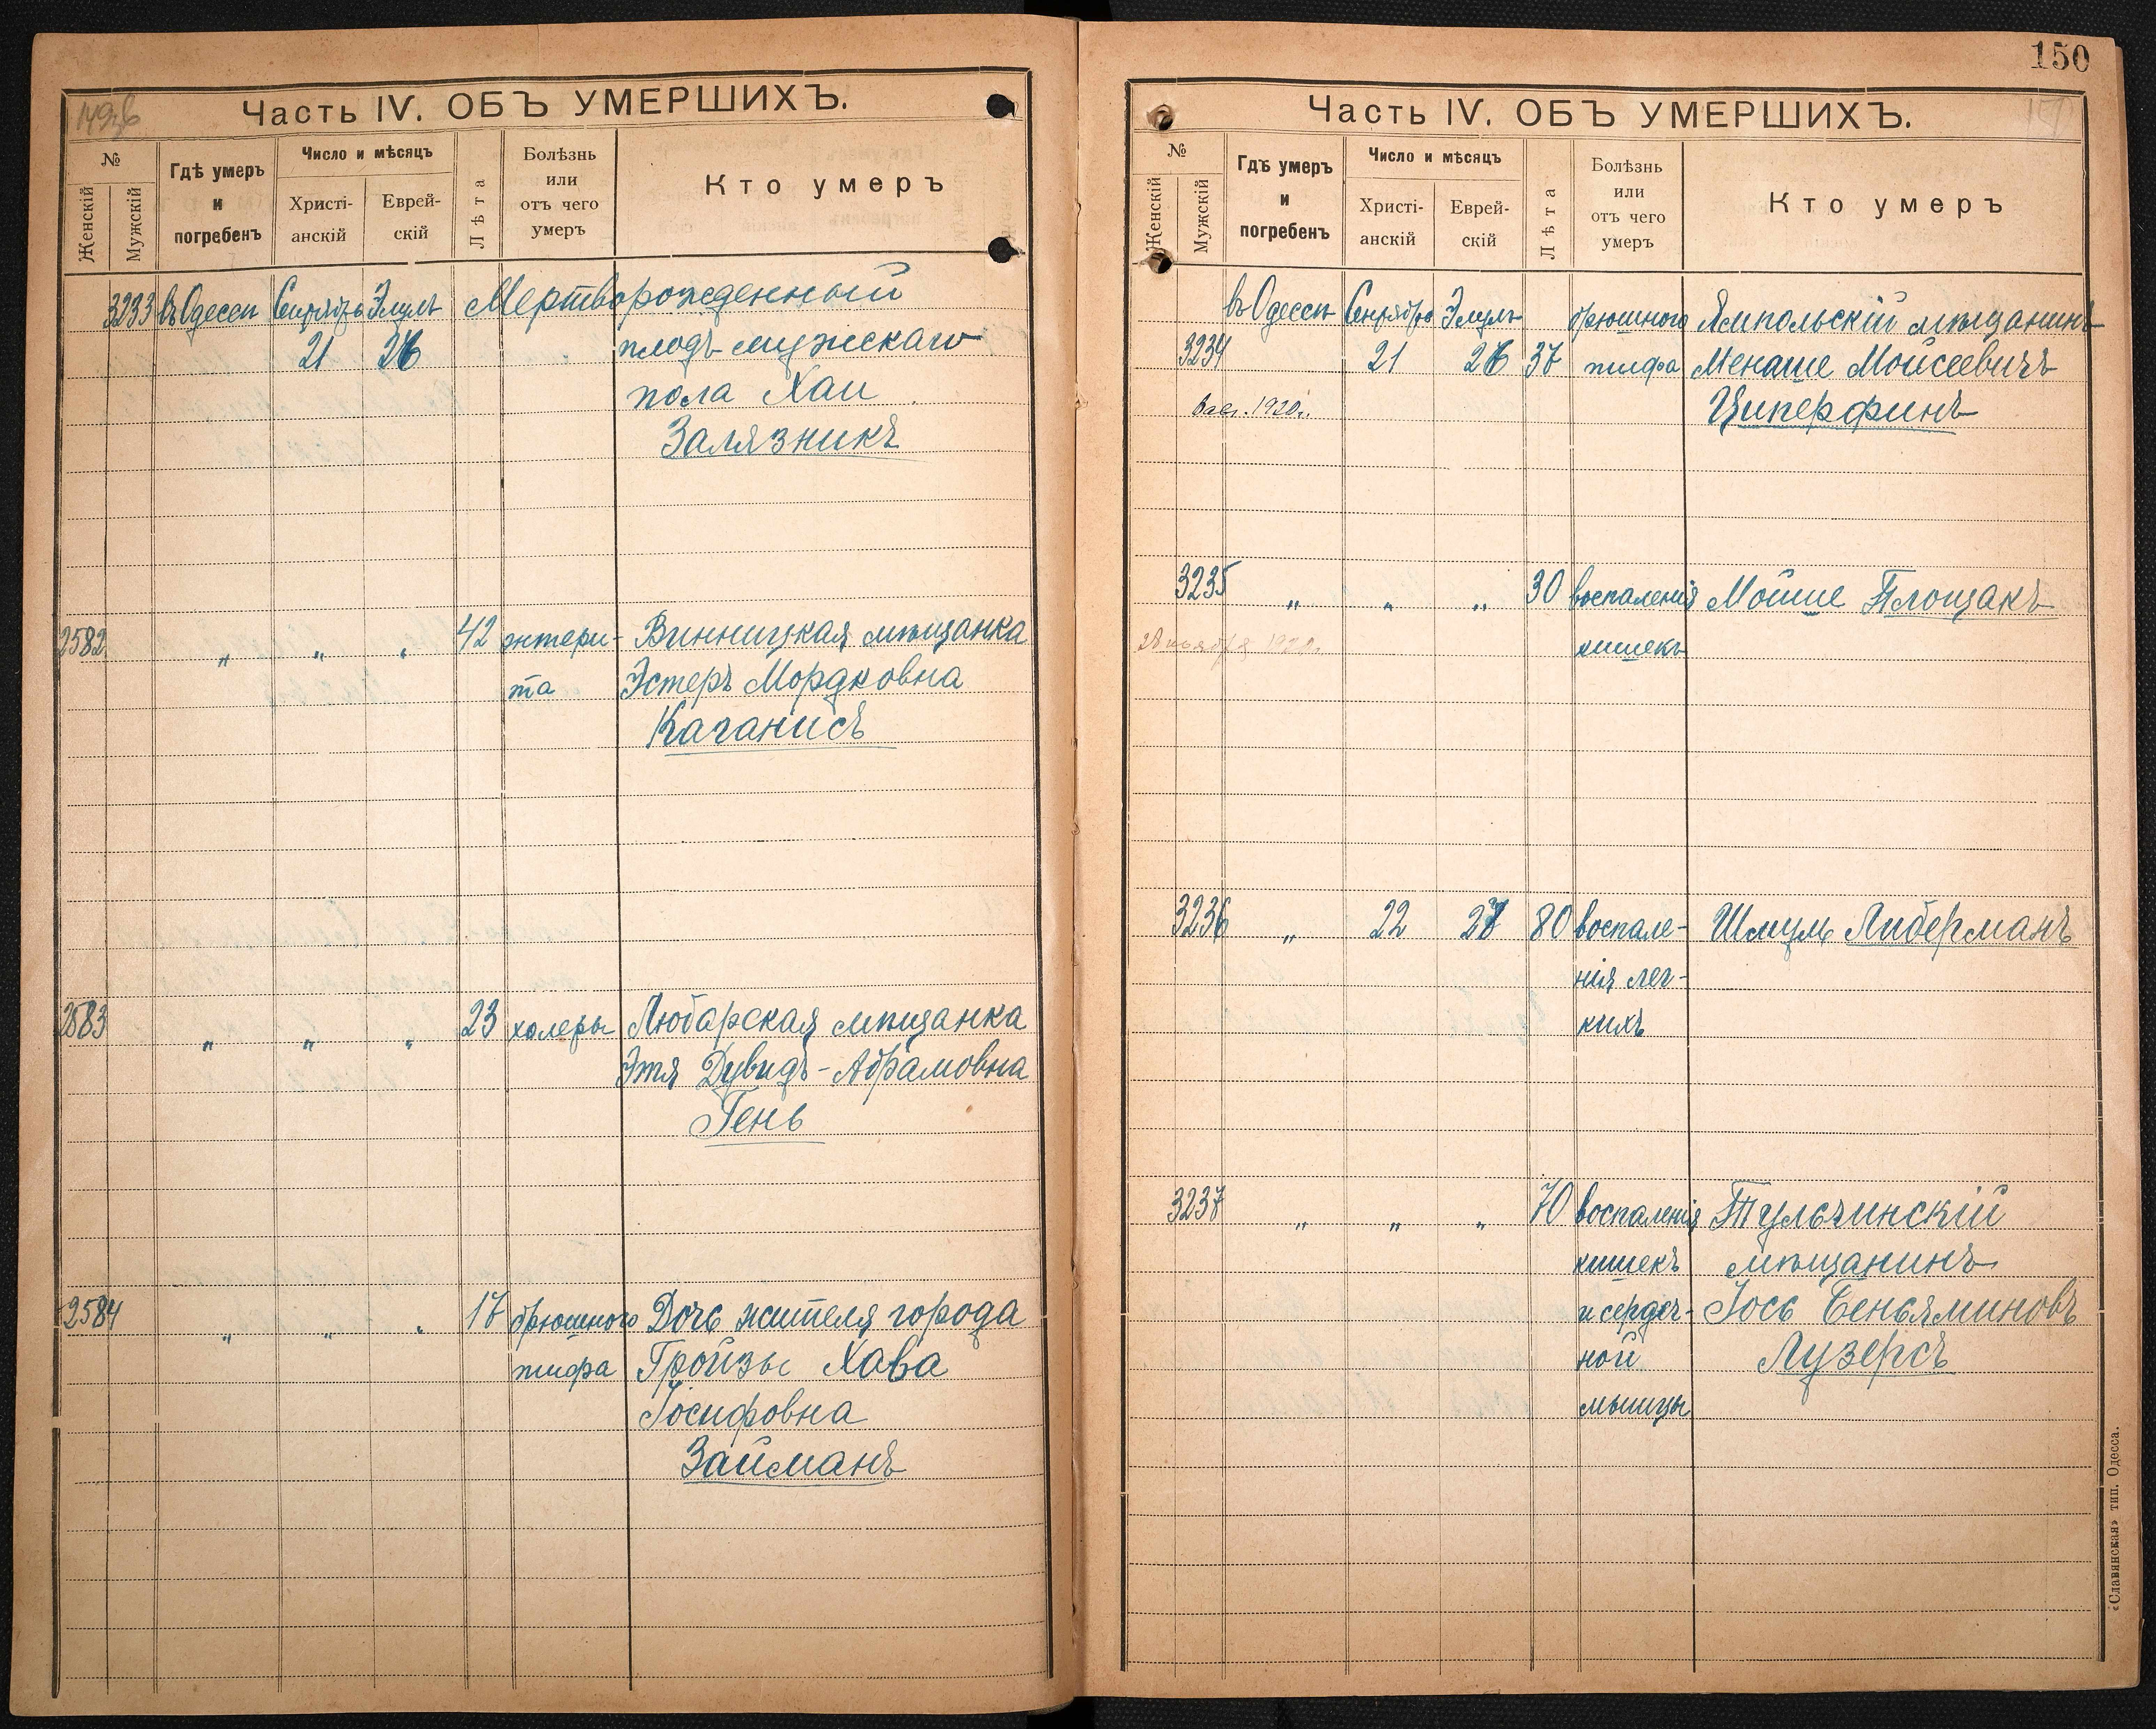 Часть IV. ОБЪ УМЕРШИХЪ.
№
Женскій
Мужскій
Гдѣ умеръ
и
погребенъ
Число и мѣсяцъ
Христі-
анскій
Еврей-
скій
Лѣта
Болѣзнь
или
отъ чего
умеръ
Кто умеръ
3233 въ Одессѣ Сентябрь Элулъ Мертворожденный
21 26 плодъ мужскаго
пола Хаи
Залязникъ
2582 " " " 42 энтери- Винницкая мѣщанка
та Эстеръ Мордковна
Каганисъ
2583 " " " 23 холеры Любарская мѣщанка
Этя Дувидъ-Абрамовна
Гень
2584 " " " 17 брюшного Дочь жителя города
тифа Гройзы Хава
Іосифовна
Займанъ
150
Часть IV. ОБЪ УМЕРШИХЪ.
№
Женскій
Мужскій
Гдѣ умеръ
и
погребенъ
Число и мѣсяцъ
Христі-
анскій
Еврей-
скій
Лѣта
Болѣзнь
или
отъ чего
умеръ
Кто умеръ
въ Одессѣ Сентябрь Элулъ брюшного Ямпольскій мѣщанинъ
3234 21 26 37 тифа Менаше Мойсеевичъ
1920г. Циперфинъ
3235 " " " 30 воспаленія Мойше Площакъ
1920г. кишекъ
3236 " 22 27 80 воспале- Шмуль Либерманъ
нія лег-
кихъ
3237 " " " 70 воспаленія Тульчинскій
кишекъ мѣщанинъ
и сердеч- Іось Беньяминовъ
ной Лузерсъ
мышцы
«Славянская» тип. Одесса.